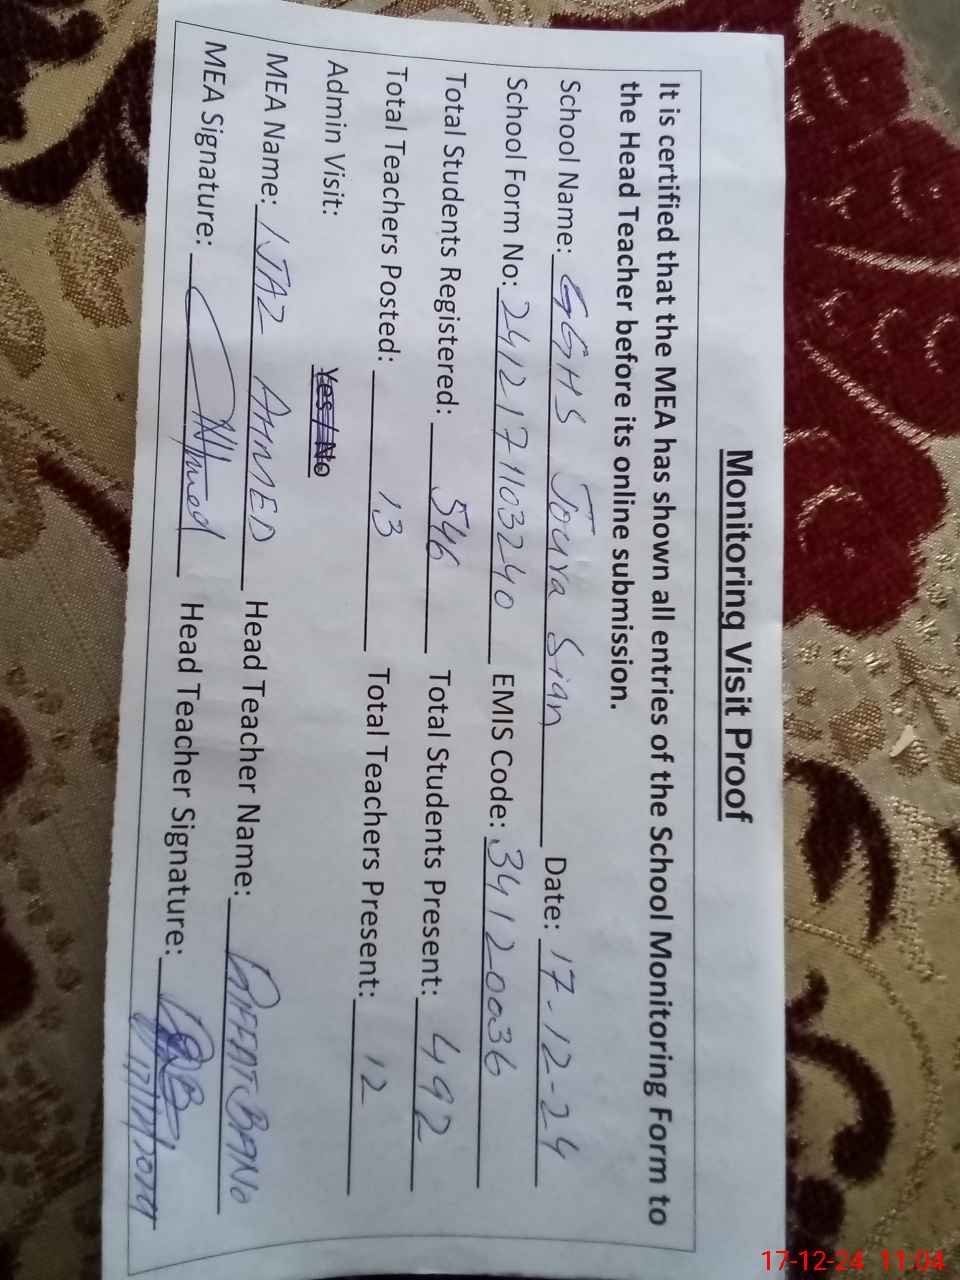 Monitoring Visit Proof
It is certified that the MEA has shown all entries of the School Monitoring Form to
the Head Teacher before its online submission.
School Name: GGHS Joura Sian Date: 17-12-24
School Form No: 2412171103240 EMIS Code: 34120036
Total Students Registered: 546 Total Students Present: 492
Total Teachers Posted: 13 Total Teachers Present: 12
Admin Visit: Yes / No
MEA Name: IJAZ AHMED Head Teacher Name: RIFFAT BANO
MEA Signature: Ahmed Head Teacher Signature:
17/12/2024
17-12-24 11:04